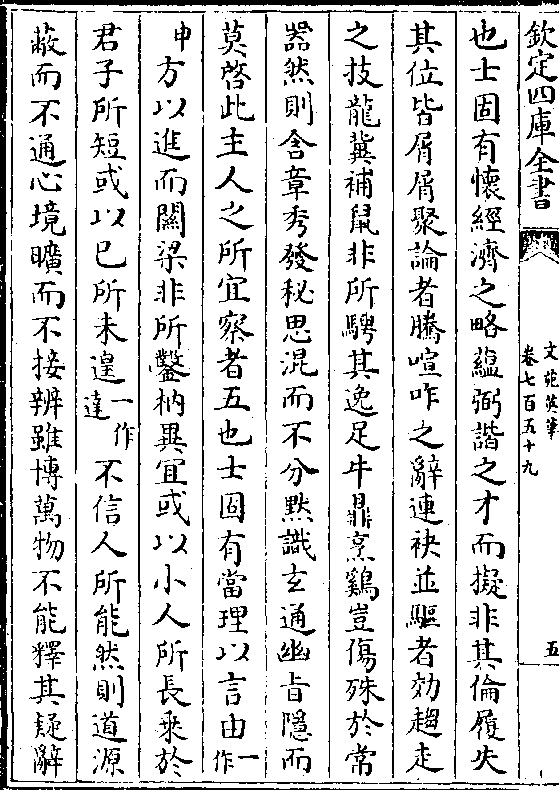 欽定四庫全書
文苑英華
卷七百五十九
五
也士固有懷經濟之略蘊弼諧之才而擬非其倫履失
其位皆屑屑聚論者騰喧咋之辭連袂並驅者効趨走
之技龍冀補鼠非所騁其逸足牛鼎烹鷄豈傷殊於常
器然則含章秀發秘思混而不分黙識玄通幽旨隠而
莫啓此主人之所宜察者五也士固有當理以言由一作
申方以進而關梁非所鑿枘異宜或以小人所長乗於
君子所短或以已所未遑一作達不信人所能然則道源
蔽而不通心境曠而不接辨雖博萬物不能釋其疑辭